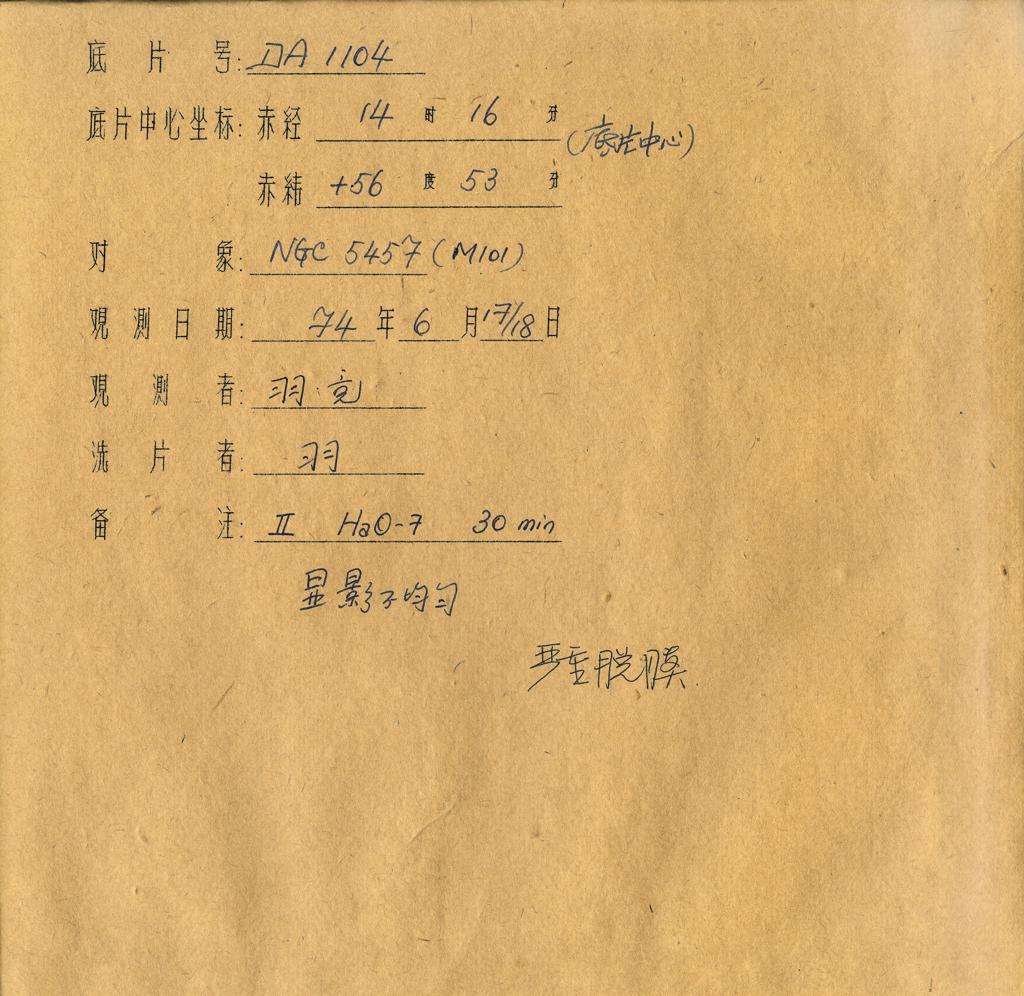 底片号: DA 1104
底片中心坐标: 赤经 14 时 16 分
(底片中心)
赤纬 +56 度 53 分
对象: NGC 5457 (M101)
观测日期: 74 年 6 月 17/18 日
观测者: 羽·竞
洗片者: 羽
备注: II HaO-7 30 min
显影不均匀
严重脱膜.